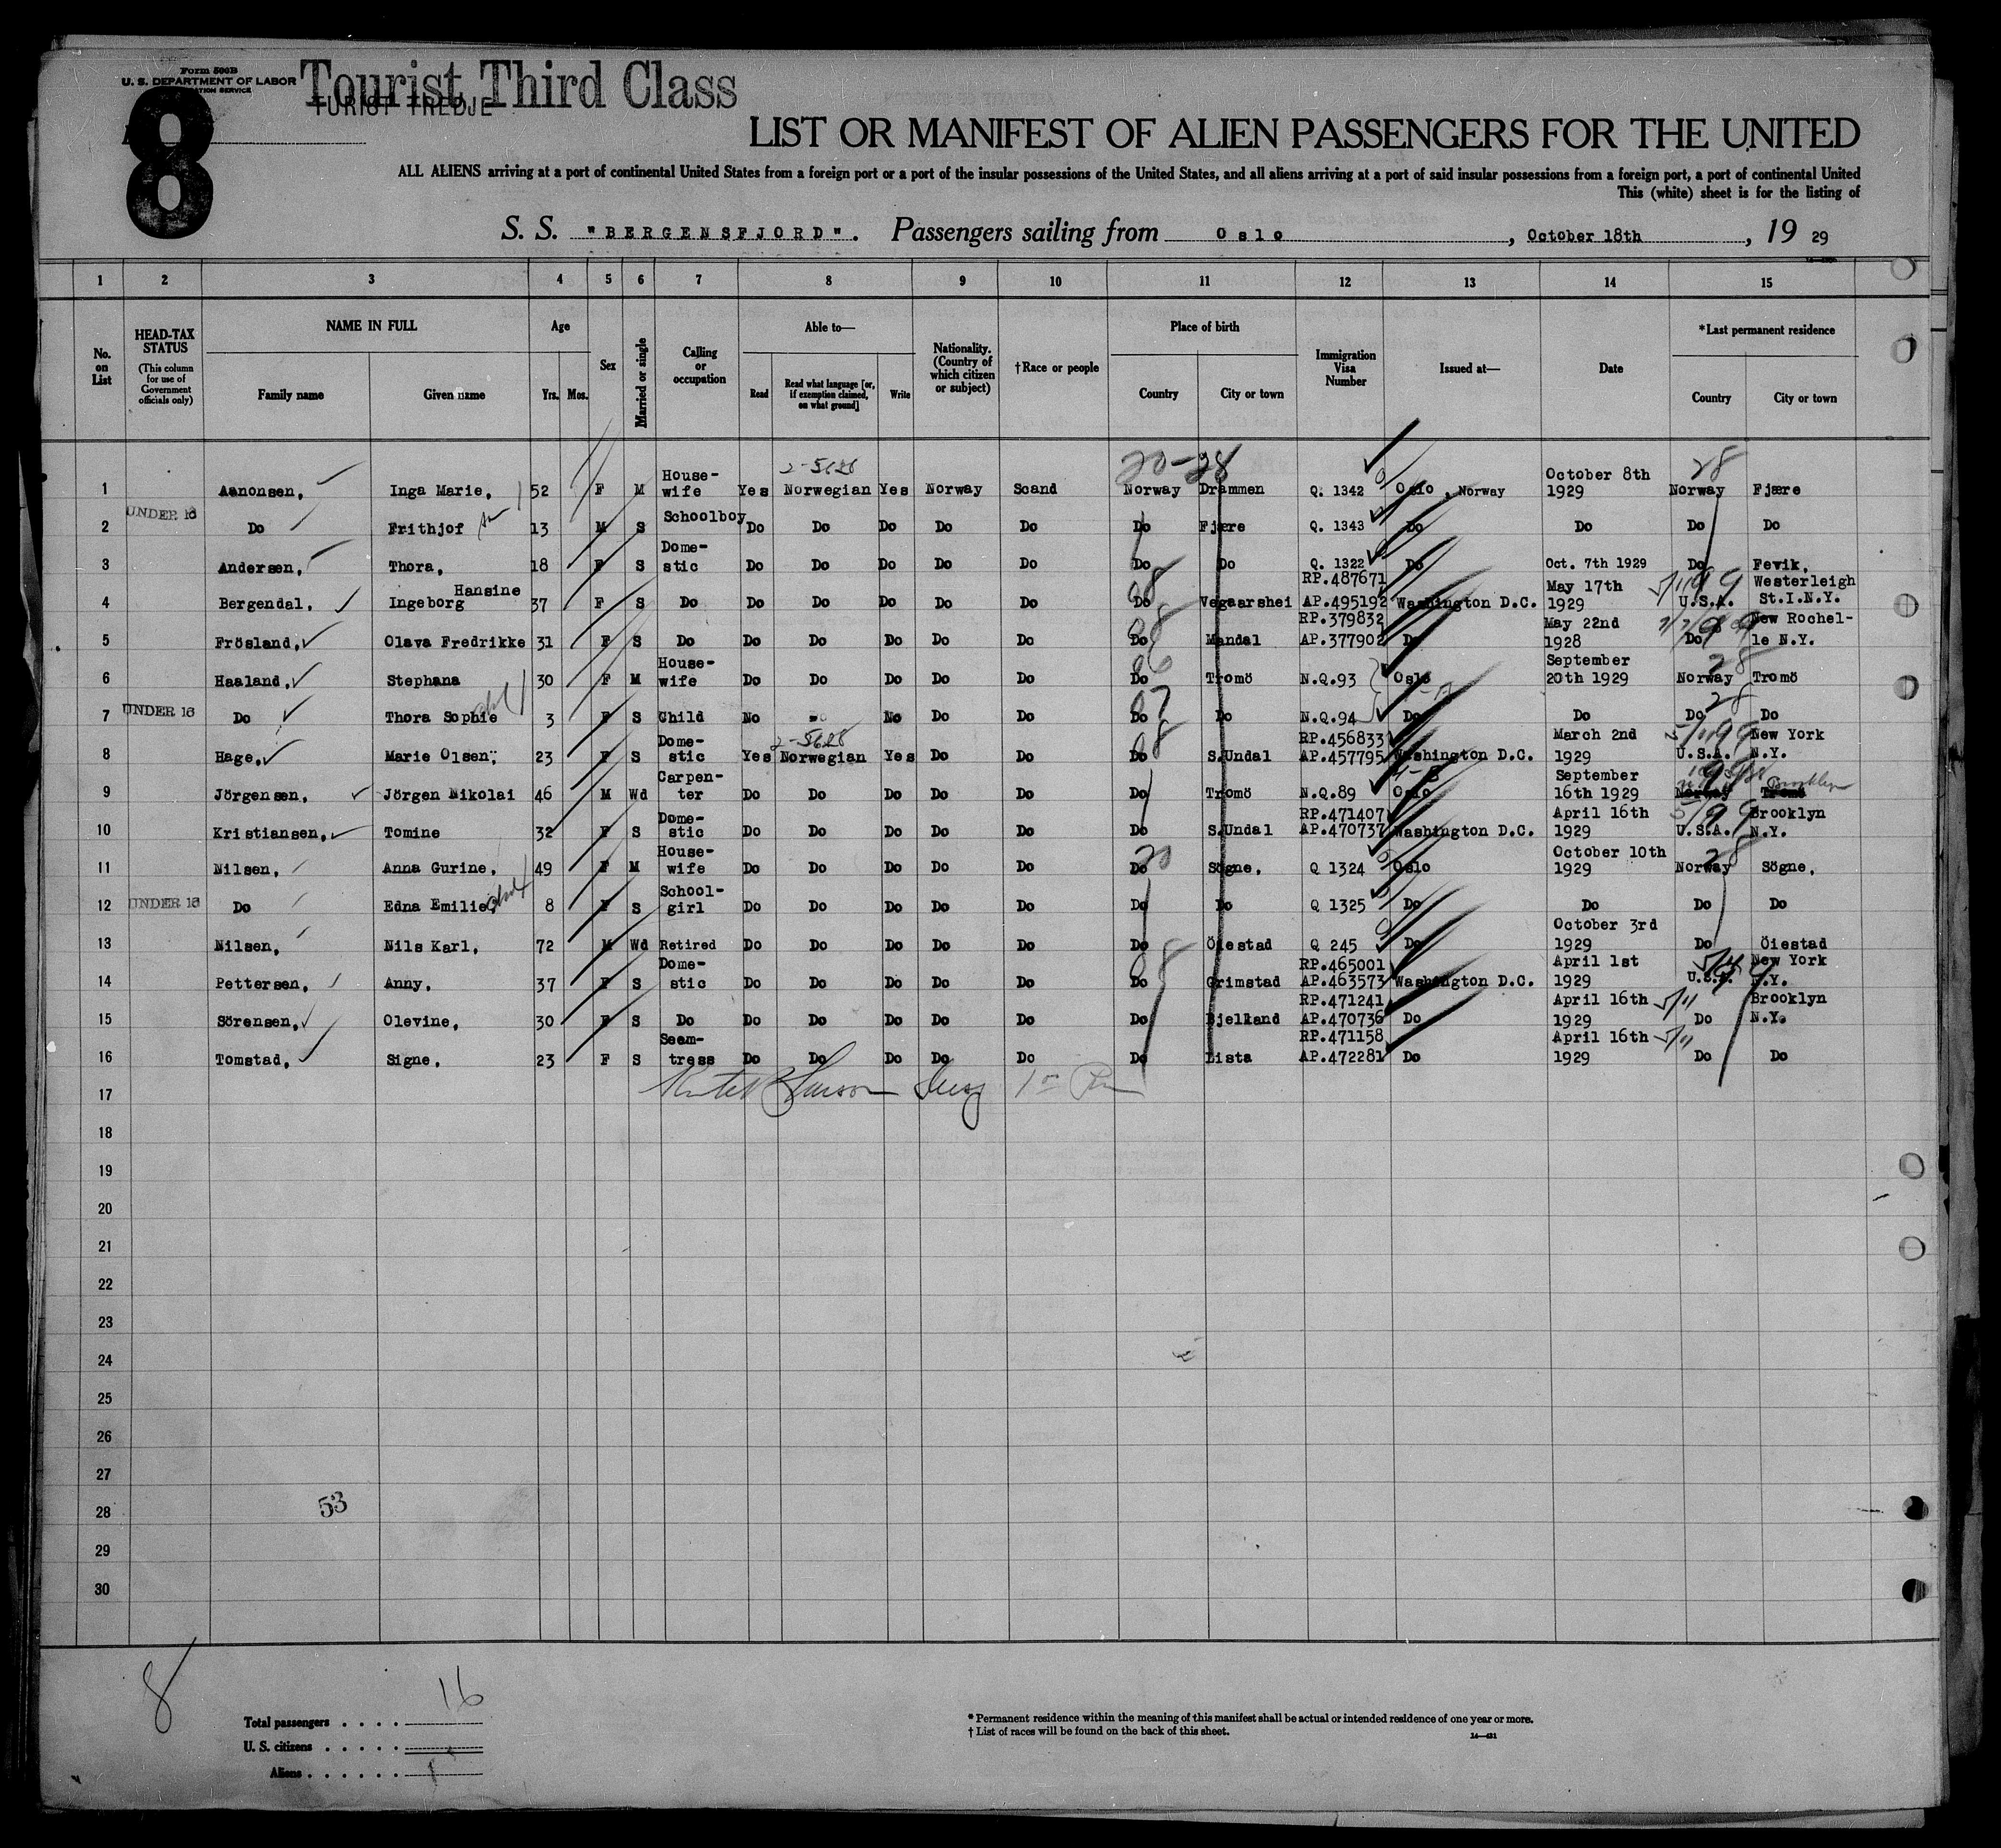 Form 500B
U. S. DEPARTMENT OF LABOR
Tourist Third Class
TURIST TREDJE
8
LIST OR MANIFEST OF ALIEN PASSENGERS FOR THE UNITED
ALL ALIENS arriving at a port of continental United States from a foreign port or a port of the insular possessions of the United States, and all aliens arriving at a port of said insular possessions from a foreign port, a port of continental United
This (white) sheet is for the listing of
S. S. "BERGENSFJORD". Passengers sailing from Oslo, October 18th, 19 29
1 2 3 4 5 6 7 8 9 10 11 12 13 14 15
No. on List
HEAD-TAX STATUS (This column for use of Government officials only)
NAME IN FULL Family name Given name
Age Yrs. Mos.
Sex
Married or single
Calling or occupation
Able to— Read Read what language [or, if exemption claimed, on what ground] Write
Nationality. (Country of which citizen or subject)
†Race or people
Place of birth Country City or town
Immigration Visa Number
Issued at—
Date
*Last permanent residence Country City or town
2-5628 20-28 28
1 Aanonsen, Inga Marie, 52 F M House-wife Yes Norwegian Yes Norway Scand Norway Drammen Q. 1342 Oslo, Norway October 8th 1929 Norway Fjære
2 UNDER 16 Do Frithjof 13 M S Schoolboy Do Do Do Do Do Do Fjære Q. 1343 Do Do Do Do
3 Andersen, Thora, 18 F S Dome-stic Do Do Do Do Do Do Do Q. 1322 Do Oct. 7th 1929 Do Fevik,
4 Bergendal, Ingeborg Hansine 37 F S Do Do Do Do Do Do Do Vegaarshei RP.487671 AP.495192 Washington D.C. May 17th 1929 U.S.A. Westerleigh St.I.N.Y.
5 Frösland, Olava Fredrikke 31 F S Do Do Do Do Do Do Do Mandal RP.379832 AP.377902 Do May 22nd 1928 Do New Rochel-le N.Y.
6 Haaland, Stephana 30 F M House-wife Do Do Do Do Do Do Tromö N.Q.93 Oslo September 20th 1929 Norway Tromö
7 UNDER 16 Do Thora Sophie 3 F S Child No No Do Do Do Do N.Q.94 Do Do Do Do
8 Hage, Marie Olsen, 23 F S Dome-stic Yes 2-5628 Norwegian Yes Do Do Do S.Undal RP.456833 AP.457795 Washington D.C. March 2nd 1929 U.S.A. New York N.Y.
9 Jörgensen, Jörgen Nikolai 46 M Wd Carpen-ter Do Do Do Do Do Do Tromö N.Q.89 Oslo September 16th 1929 Norway Tromö Brooklyn
10 Kristiansen, Tomine 32 F S Dome-stic Do Do Do Do Do Do S.Undal RP.471407 AP.470737 Washington D.C. April 16th 1929 U.S.A. Brooklyn N.Y.
11 Nilsen, Anna Gurine, 49 F M House-wife Do Do Do Do Do Do Sögne, Q 1324 Oslo October 10th 1929 Norway Sögne,
12 UNDER 16 Do Edna Emilie, 8 F S School-girl Do Do Do Do Do Do Do Q 1325 Do Do Do Do
13 Nilsen, Nils Karl, 72 M Wd Retired Do Do Do Do Do Do Öiestad Q 245 Do October 3rd 1929 Do Öiestad
14 Pettersen, Anny, 37 F S Dome-stic Do Do Do Do Do Do Grimstad RP.465001 AP.463573 Washington D.C. April 1st 1929 U.S.A. New York N.Y.
15 Sörensen, Olevine, 30 F S Do Do Do Do Do Do Do Bjelland RP.471241 AP.470736 Do April 16th 1929 Do Brooklyn N.Y.
16 Tomstad, Signe, 23 F S Seam-tress Do Do Do Do Do Do Lista RP.471158 AP.472281 Do April 16th 1929 Do Do
17
18
19
20
21
22
23
24
25
26
27
28 53
29
30
8
Total passengers . . . . 16
U. S. citizens . . . . .
Aliens . . . . . .
* Permanent residence within the meaning of this manifest shall be actual or intended residence of one year or more.
† List of races will be found on the back of this sheet.